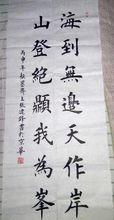 海到無邊天作岸
山登絕顯我為峯
丙申年 書於京華